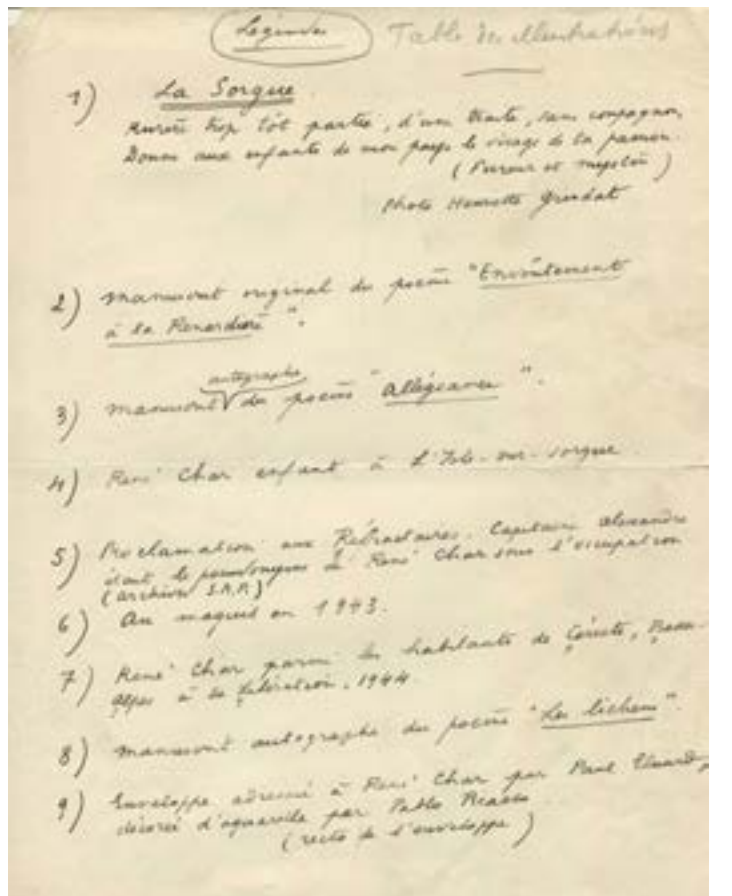 Légendes Table des illustrations
1) La Sorgue.
Rivière trop tôt partie, d'une traite, sans compagnon,
Donne aux enfants de mon pays le visage de ta passion.
(Fureur et mystère)
Photo Henriette Grindat
2) Manuscrit original du poème "Envoûtement
à la Renardière".
autographe
3) Manuscrit du poème "Allégeance".
4) René Char enfant à L'Isle-sur-Sorgue.
5) Proclamation aux Réfractaires. Capitaine Alexandre
était le pseudonyme de René Char sous l'occupation
(archives S.A.P.)
6) Au maquis en 1943.
7) René Char parmi les habitants de Céreste, Basses-
Alpes à la Libération, 1944
8) Manuscrit autographe du poème "Les lichens".
9) Enveloppe adressée à René Char par Paul Eluard,
décorée d'aquarelle par Pablo Picasso
(recto de l'enveloppe)